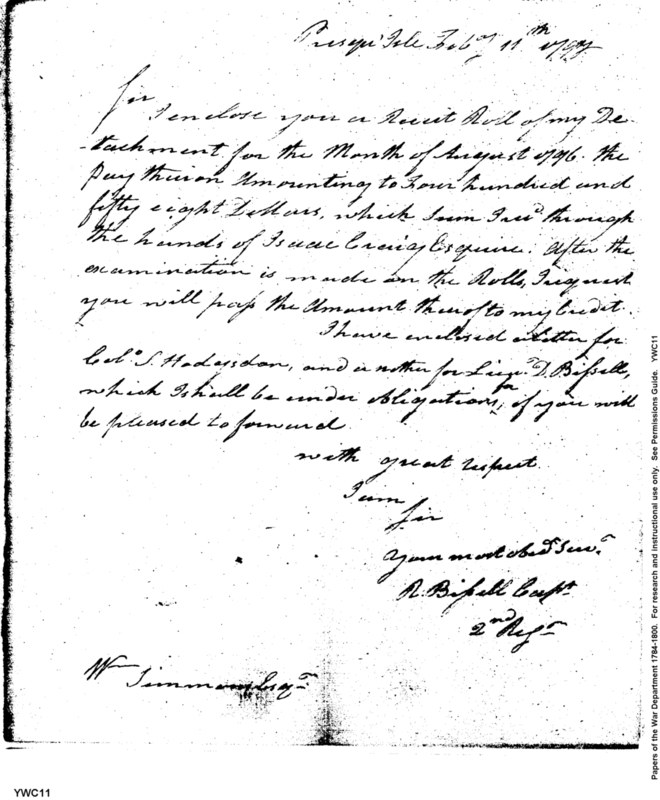 Presqu' Isle Feb.y 11th 1797
Sir
I enclose you a Receit Roll of my De-
-tachment for the Month of August 1796. the
Pay theron Amounting to Four hundred and
fifty eight Dollars, which Sum I recd. through
the hands of Isaac Craig Esquire. After the
examination is made on the Rolls, I request
you will pass the Amount therof to my Credit.
I have enclosed a letter for
Colo. S. Hodgsdon, and a nother for Lieut. D. Bissell,
which I shall be under obligations, if you will
be pleased to forward
with great respect
I am
Sir
Your most obedt. Servt.
R. Bissell Capt.
2nd Regt.
Wm Simmons Esqr.
Papers of the War Department 1784-1800. For research and instructional use only. See Permissions Guide. YWC11
YWC11